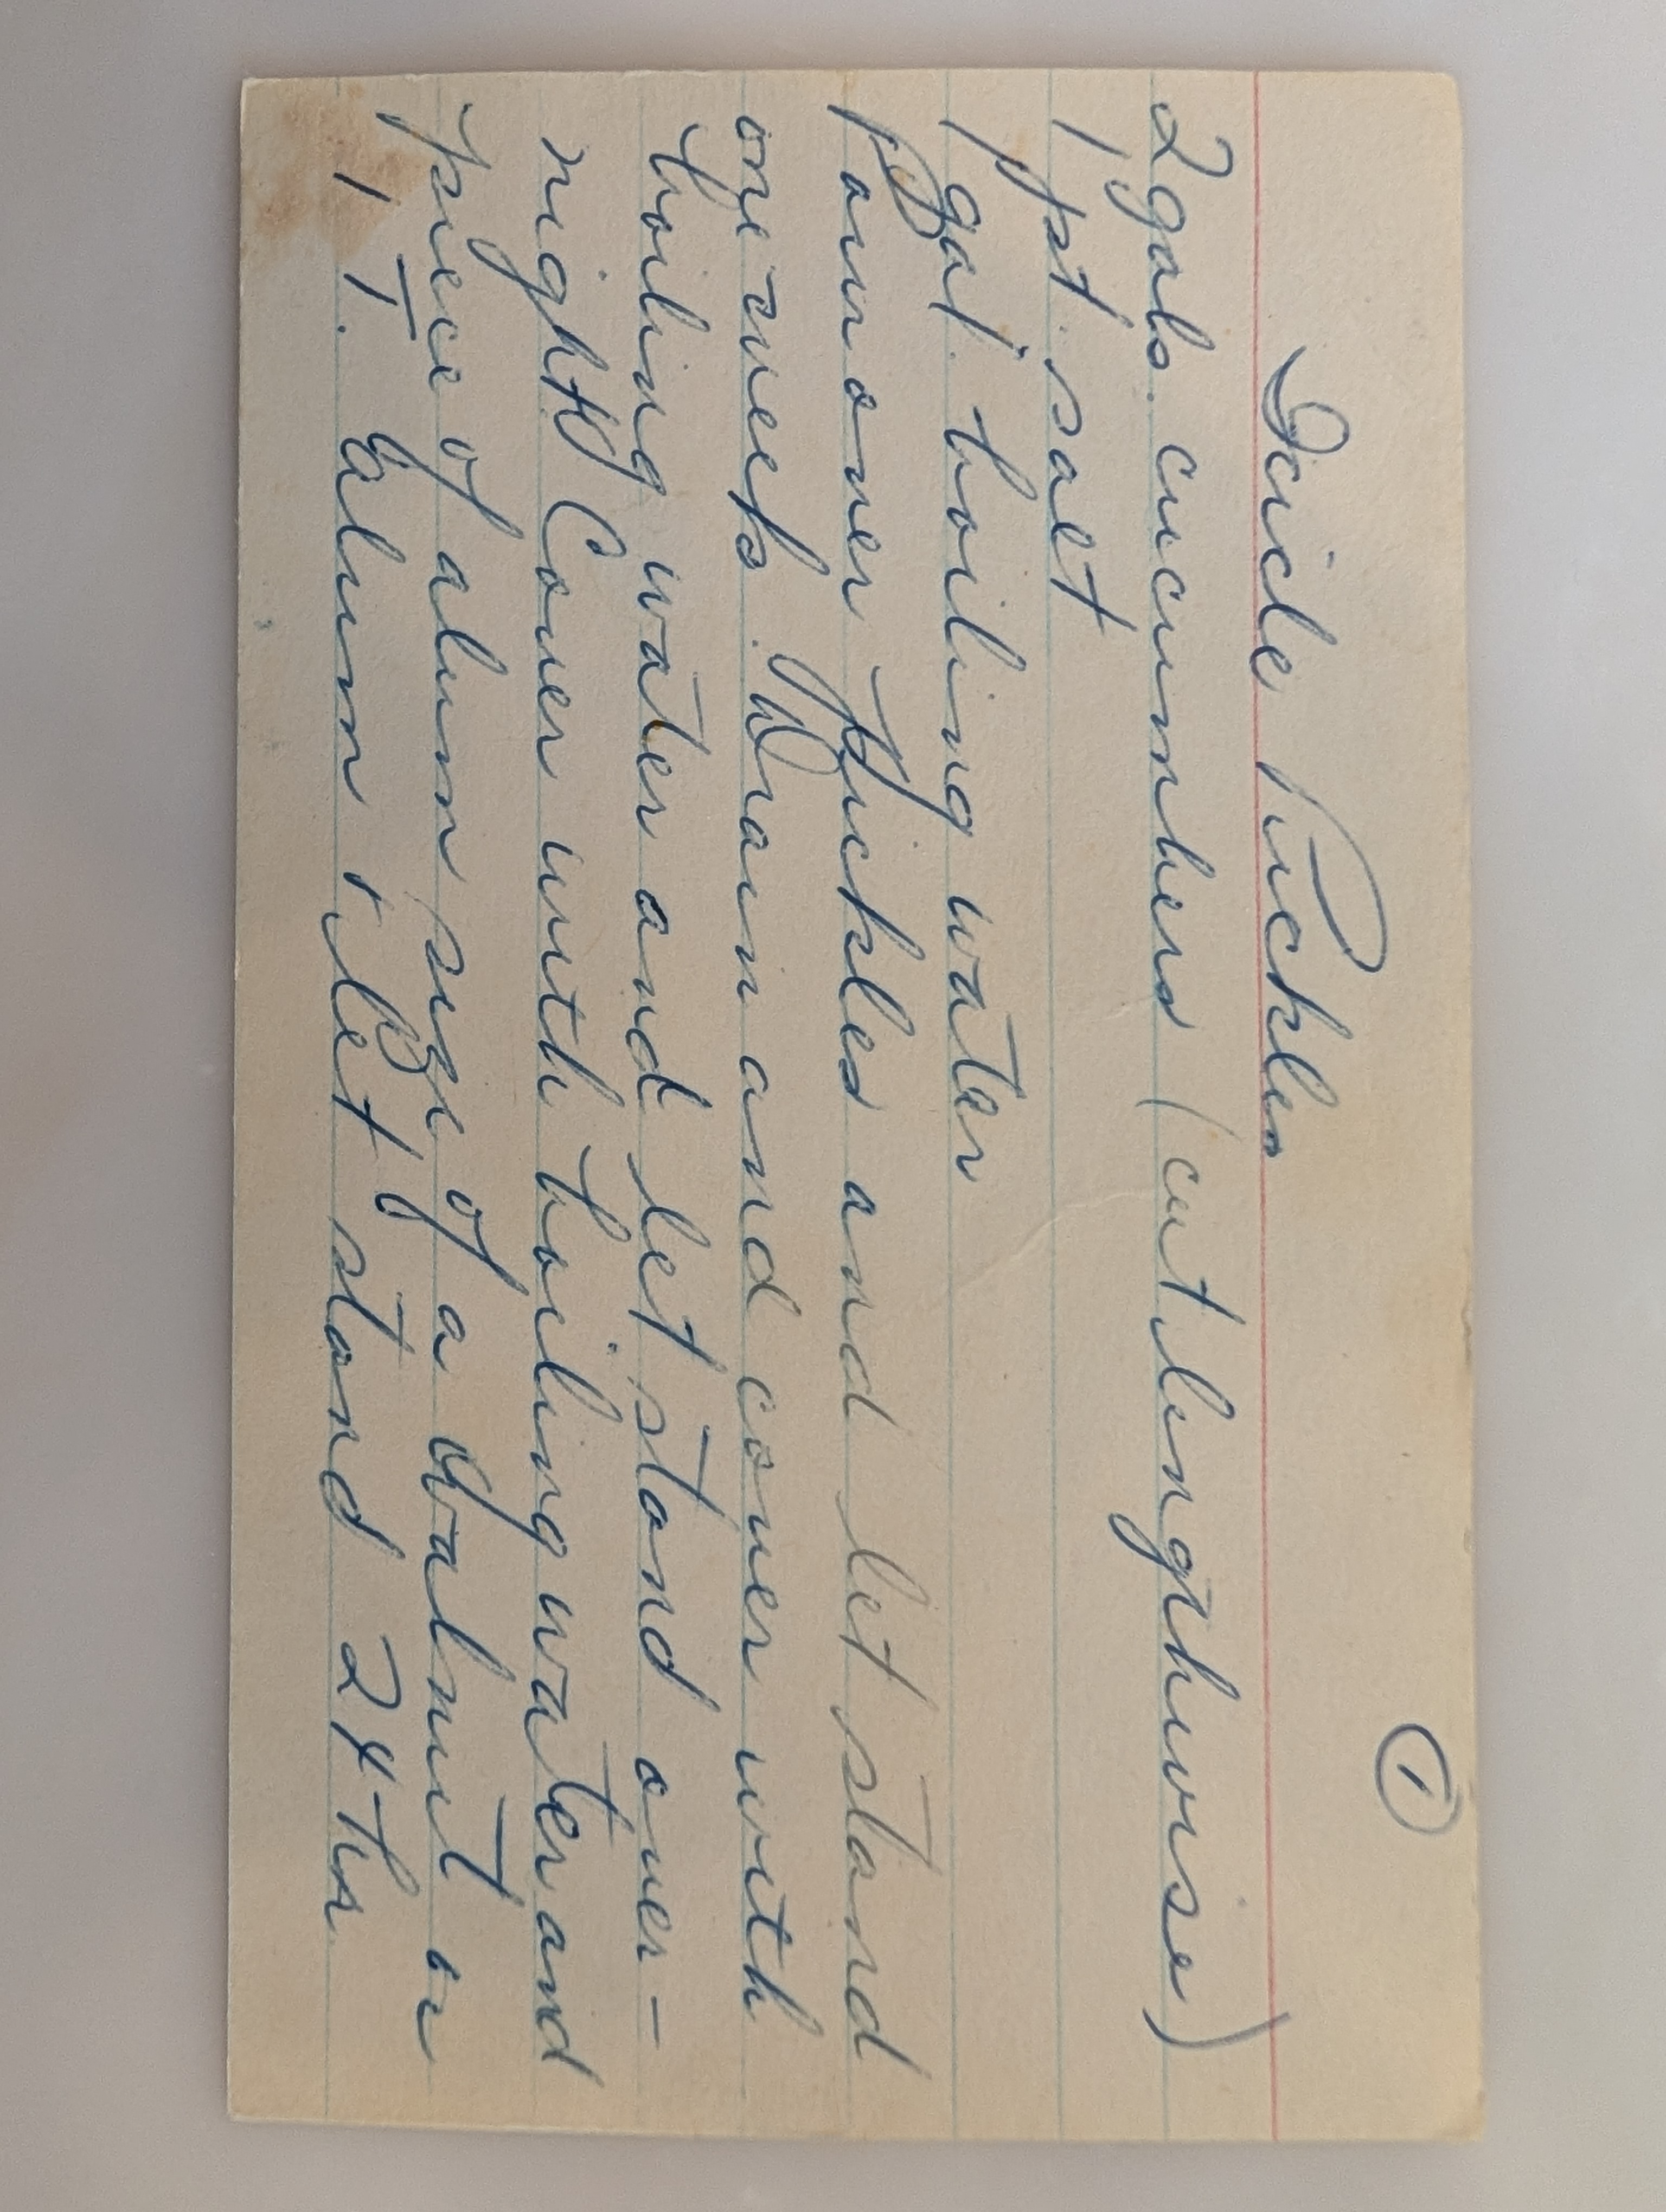 ①
Icicle Pickles
2 gals. cucumbers (cut lengthwise)
1 pt. salt
1 gal. boiling water
Pour over pickles and let stand
one week. Drain and cover with
boiling water and let stand over-
night. Cover with boiling water and
piece of alum size of a walnut or
1 T. alum & let stand 24 hr.